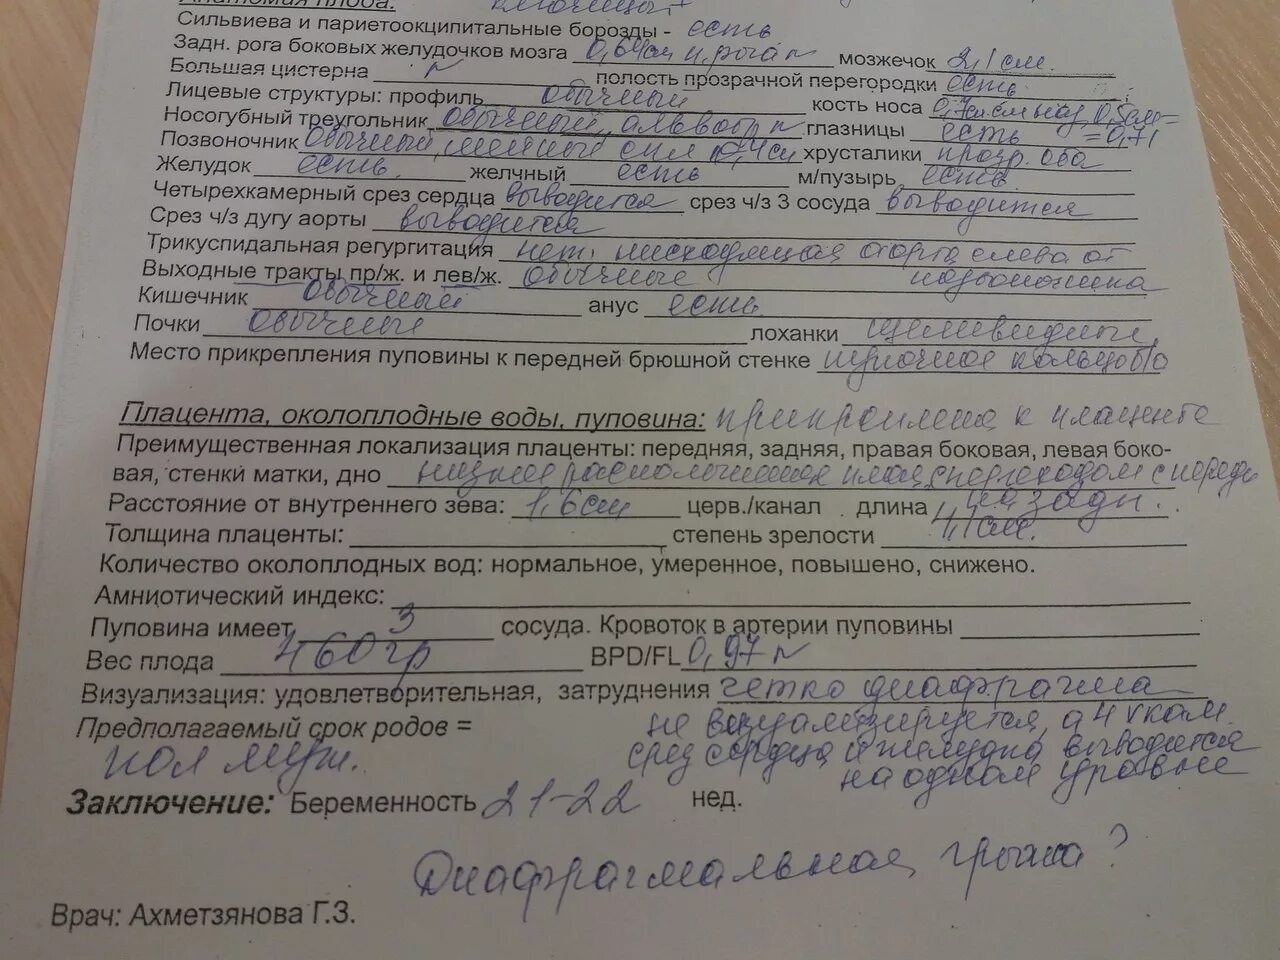 Анатомия плода:
Сильвиева и париетоокципитальные борозды - есть
Задн. рога боковых желудочков мозга 0,64см н. рога N мозжечок 2,1 см.
Большая цистерна N полость прозрачной перегородки есть
Лицевые структуры: профиль обычный кость носа
Носогубный треугольник обычный, глазницы есть = 0,71
Позвоночник обычный, хрусталики прозр. оба
Желудок есть. желчный есть м/пузырь есть
Четырехкамерный срез сердца выводится срез ч/з 3 сосуда выводится
Срез ч/з дугу аорты выводится
Трикуспидальная регургитация нет. нисходящая аорта слева от
Выходные тракты пр/ж. и лев/ж. обычные позвоночника
Кишечник обычный анус есть
Почки обычные лоханки щелевидные
Место прикрепления пуповины к передней брюшной стенке пупочное кольцо б/о
Плацента, околоплодные воды, пуповина: прикреплена к плаценте
Преимущественная локализация плаценты: передняя, задняя, правая боковая, левая боко-
вая, стенки матки, дно низкое расположение плац. с переходом спереди
Расстояние от внутреннего зева: 1,6см церв./канал длина кзади.
4,1см.
Толщина плаценты: степень зрелости
Количество околоплодных вод: нормальное, умеренное, повышено, снижено.
Амниотический индекс:
Пуповина имеет 3 сосуда. Кровоток в артерии пуповины
Вес плода 460гр BPD/FL 0,97 N
Визуализация: удовлетворительная, затруднения четко диафрагма
Предполагаемый срок родов = не визуализируется, а 4х кам.
пол муж. срез сердца и желудка выводится
на одном уровне
Заключение: Беременность 21-22 нед.
Диафрагмальная грыжа?
Врач: Ахметзянова Г.З.